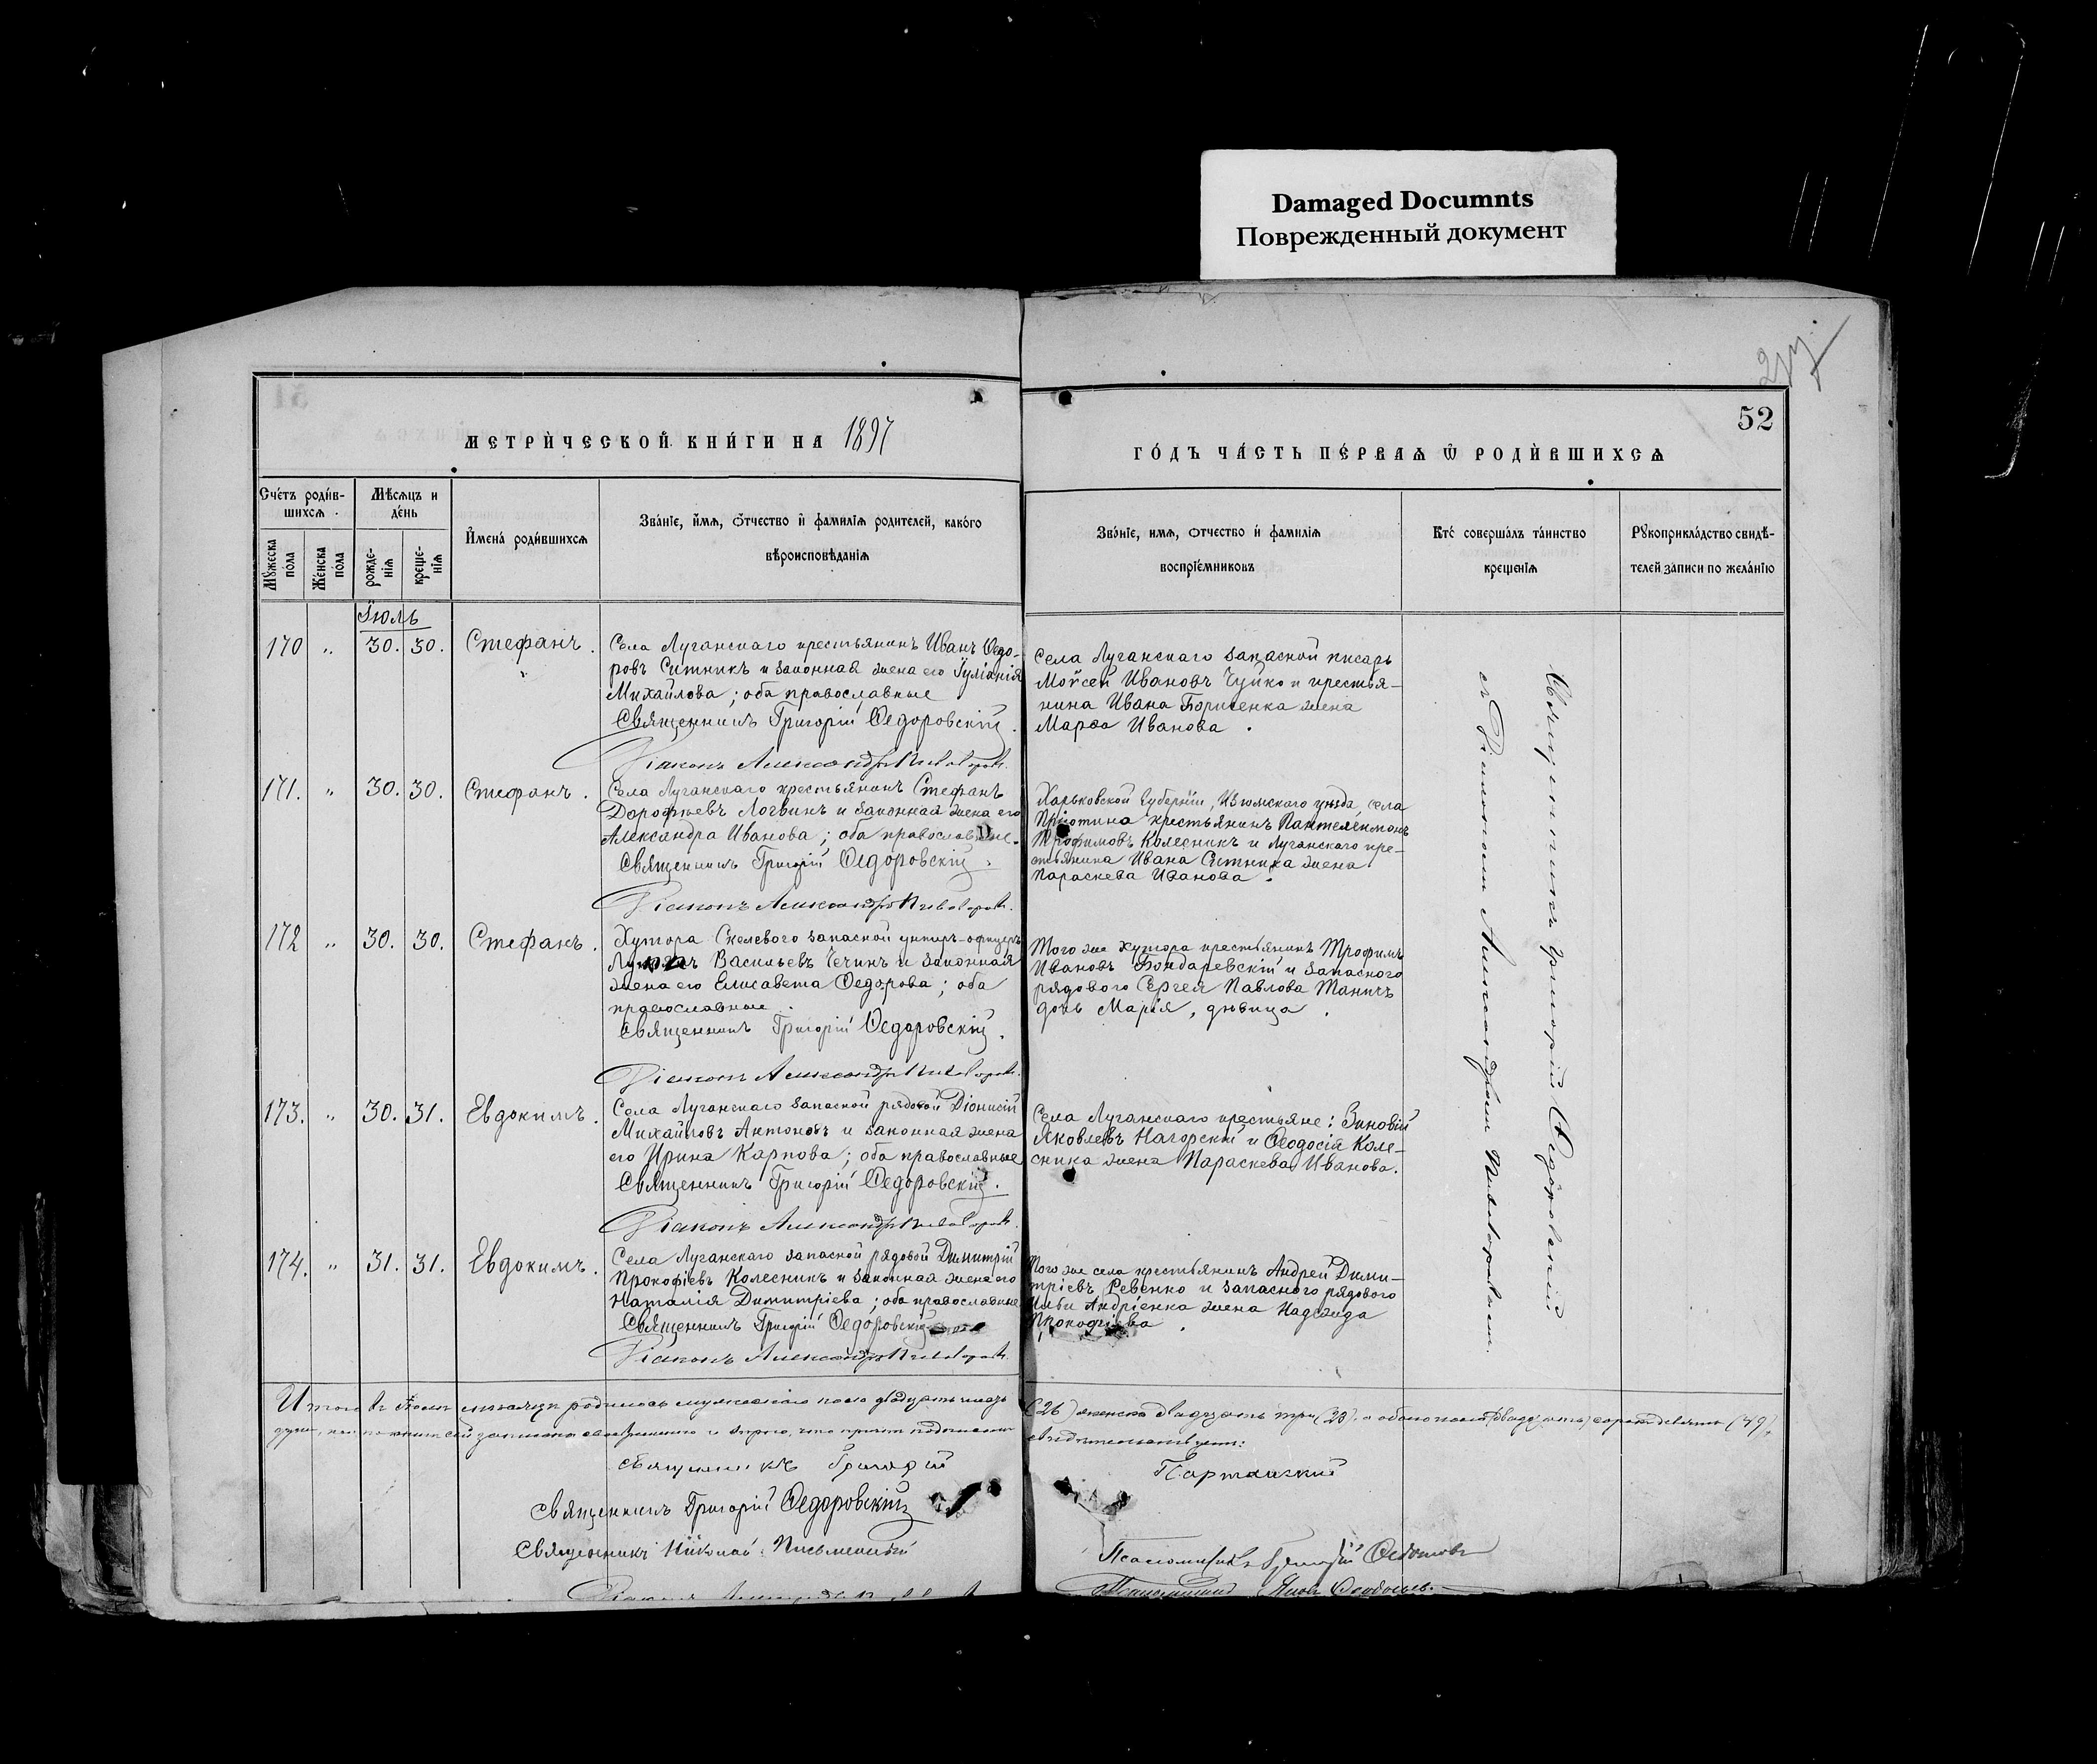 Damaged Documnts
Поврежденный документ
52
МЕТРИ́ЧЕСКОЙ КНИ́ГИ НА 1897
ГО́ДЪ ЧА́СТЬ ПЕ́РВАѦ Ѿ РОДИ́ВШИХСѦ
Сче́тъ роди́в-
шихсѧ
Мѣ́сѧцъ и
де́нь
Мꙋ́жеска
по́ла
Же́нска
по́ла
рожде-
нїѧ
креще-
нїѧ
И҆мена̀ роди́вшихсѧ
Зва́нїе, и҆́мѧ, ѻ҆́тчество и҆ фамилїѧ родителей, како́го
вѣроисповѣ́данїѧ
Зва́нїе, имѧ, ѻтчество и҆ фамилїѧ
воспрїе́мниковъ
Кто́ совершалъ та́инство
крещенїѧ
Рꙋкоприкла́дство свидѣ́-
телей записи по жела́нїю
Іюль
170 „ 30. 30. Стефанъ.
Села Луганскаго крестьянинъ Иванъ Ѳедо-
ровъ Ситникъ и законная жена его Іуліанія
Михайлова; оба православные
Священникъ Григорій Ѳедоровскій.
Діаконъ Александръ Пивоваровъ.
Села Луганскаго запасной писарь
Моѵсей Ивановъ Чуйко и крестья-
нина Ивана Борисенка жена
Марѳа Иванова.
171. „ 30. 30. Стефанъ.
Села Луганскаго крестьянинъ Стефанъ
Дорофѣевъ Логвинъ и законная жена его
Александра Иванова; оба православные.
Священникъ Григорій Ѳедоровскій.
Діаконъ Александръ Пивоваровъ.
Харьковской Губерніи, Изюмскаго уѣзда, села
крестьянинъ Пантелеимонъ
Трофимовъ Колесникъ и Луганскаго кре-
стьянина Ивана Ситника жена
Параскева Иванова.
172 „ 30. 30. Стефанъ.
Хутора Скелевого запасной унтеръ-офицеръ
Васильевъ Чечинъ и законная
жена его Елисавета Ѳедорова; оба
православные.
Священникъ Григорій Ѳедоровскій.
Діаконъ Александръ Пивоваровъ.
Того же хутора крестьянинъ Трофимъ
Ивановъ Бондаревскій и запасного
рядового Сергея Павлова
дочь Марія, дѣвица.
173. „ 30. 31. Евдокимъ.
Села Луганскаго запасной рядовой Діонисій
Михайловъ Антоновъ и законная жена
его Ирина Карпова; оба православные
Священникъ Григорій Ѳедоровскій.
Діаконъ Александръ Пивоваровъ.
Села Луганскаго крестьяне: Зиновій
Яковлевъ Нагорскій и Ѳеодосія Коле-
сника жена Параскева Иванова.
174. „ 31. 31. Евдокимъ.
Села Луганскаго запасной рядовой Димитрій
Прокофіевъ Колесникъ и законная жена его
Наталія Димитріева; оба православные
Священникъ Григорій Ѳедоровскій
Діаконъ Александръ Пивоваровъ.
Того же села крестьянинъ Андрей Дими-
тріевъ Ревенко и запасного рядового
Ильи Андріенка жена Надежда
Прокофіева.
Священникъ Григорій Ѳедоровскій
съ Діакономъ Александромъ Пивоваровымъ.
Итого въ Іюлѣ мѣсяцѣ родилось мужескаго пола двадцать шесть
(26) женска двадцать три (23), а обоего пола сорокъ девять (49)
свидѣтельствуетъ:
Священникъ Григорій
Священникъ Григорій Ѳедоровскій
Священникъ Николай Письменный
Псаломщикъ Григорій Ѳедотовъ
Псаломщикъ